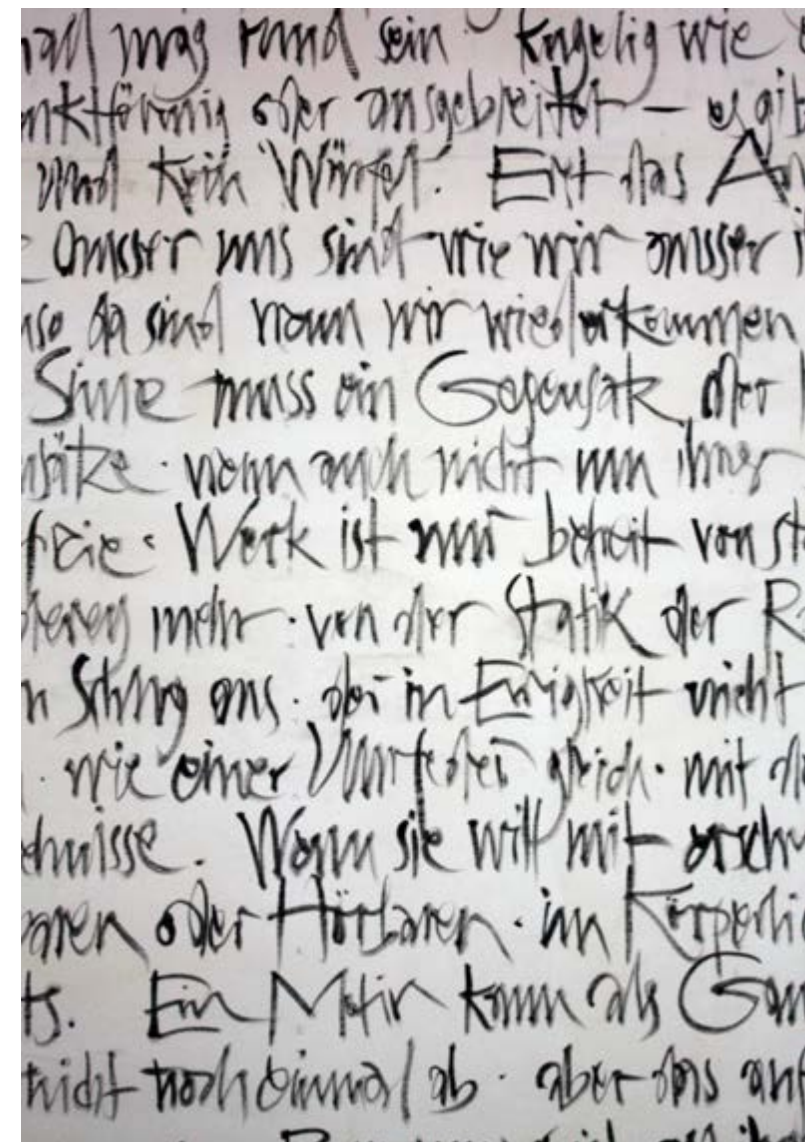 all mag rund sein · kugelig wie
nktförmig oder ausgebreitet – es gib
und kein Würfel. Erst das
ausser uns sind wie wir ausser
so da sind wenn wir wiederkommen
Sinne muss ein Gegensatz der
sätze · wenn auch nicht nun ihrer
freie · Werk ist nur befreit von st
deren mehr · von der Statik der R
n Schlag aus · der in Ewigkeit nicht
· wie einer gleich · mit
bnisse. Wenn sie will mit
baren oder Hörbaren · im Körperli
ts. Ein Motiv kann als Gan
nicht noch einmal ab · aber das auf